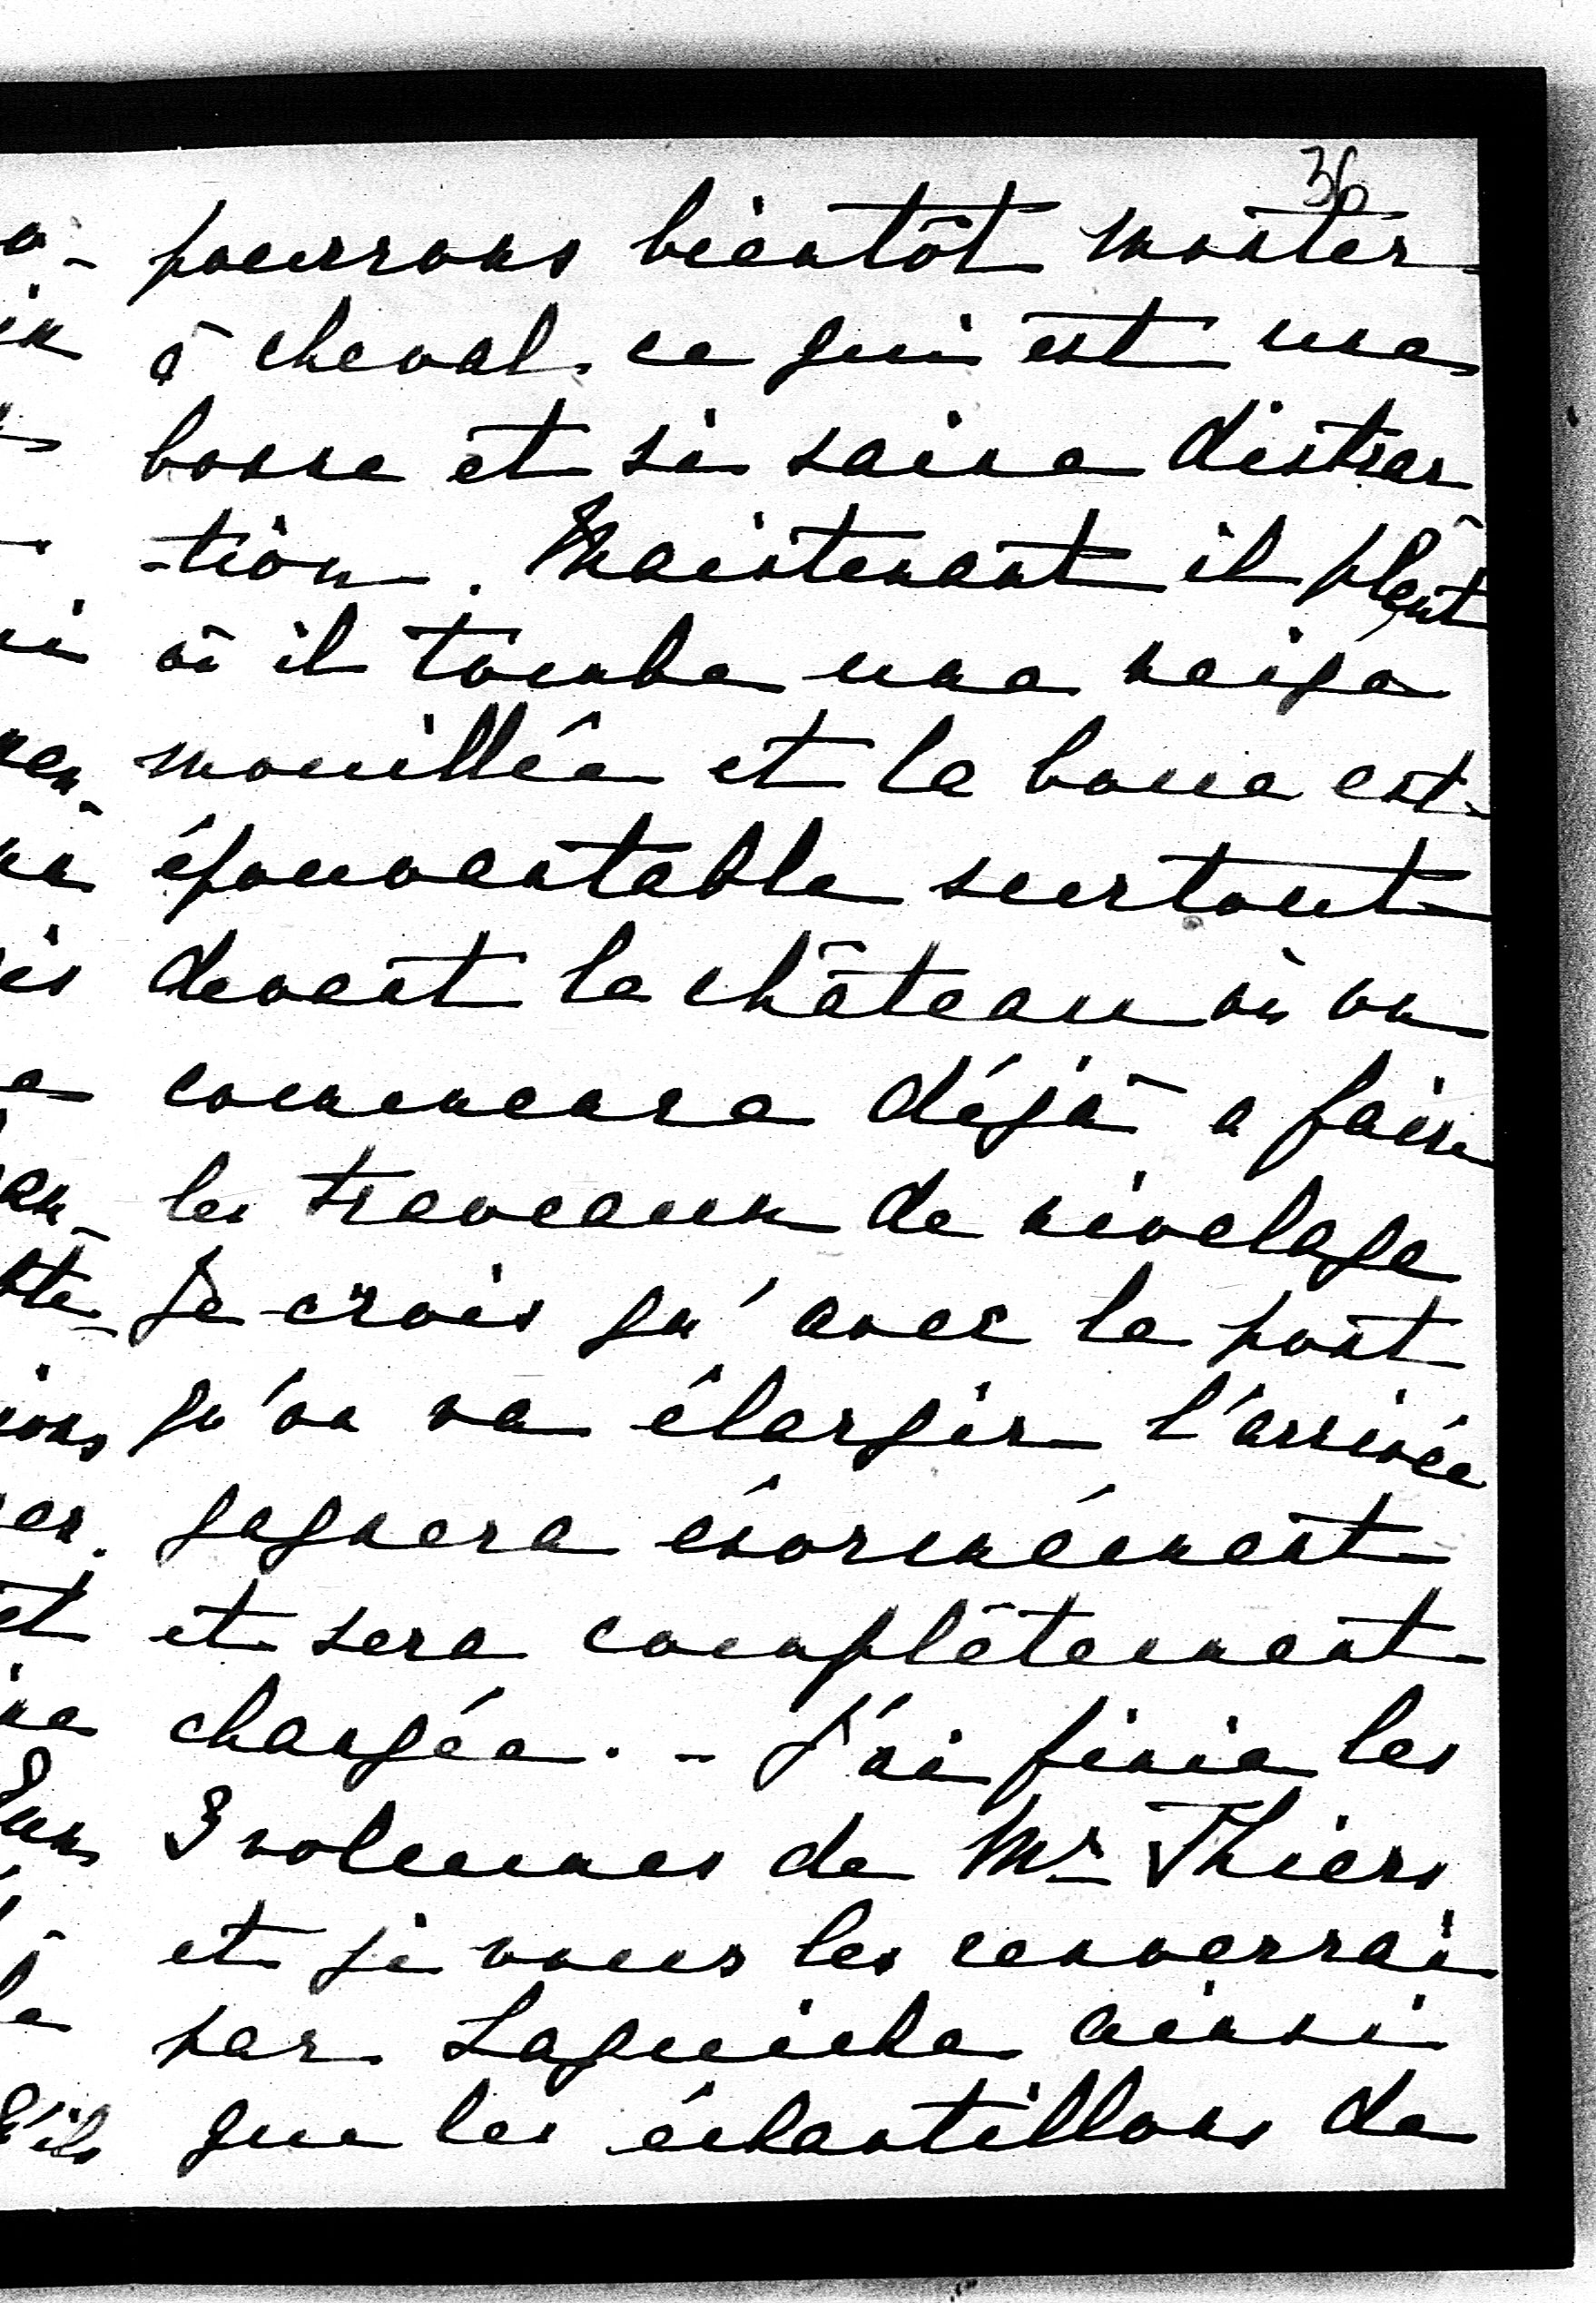 36
pourrons bientôt monter
à cheval, ce qui est une
bonne et si saine distrac
-tion. Maintenant il pleut
où il tombe une neige
mouillée et la boue est
épouvantable surtout
devant le château où on
commence déjà a faire
les traveaux de nivelage
Je crois qu'avec le pont
qu'on va élargir l'arrivée
gagnera énormément
et sera complètement
changée. - J'ai finie les
3 volumes de Mr Thiers
et je vous les renverrai
par Laguiche ainsi
que les échantillons de